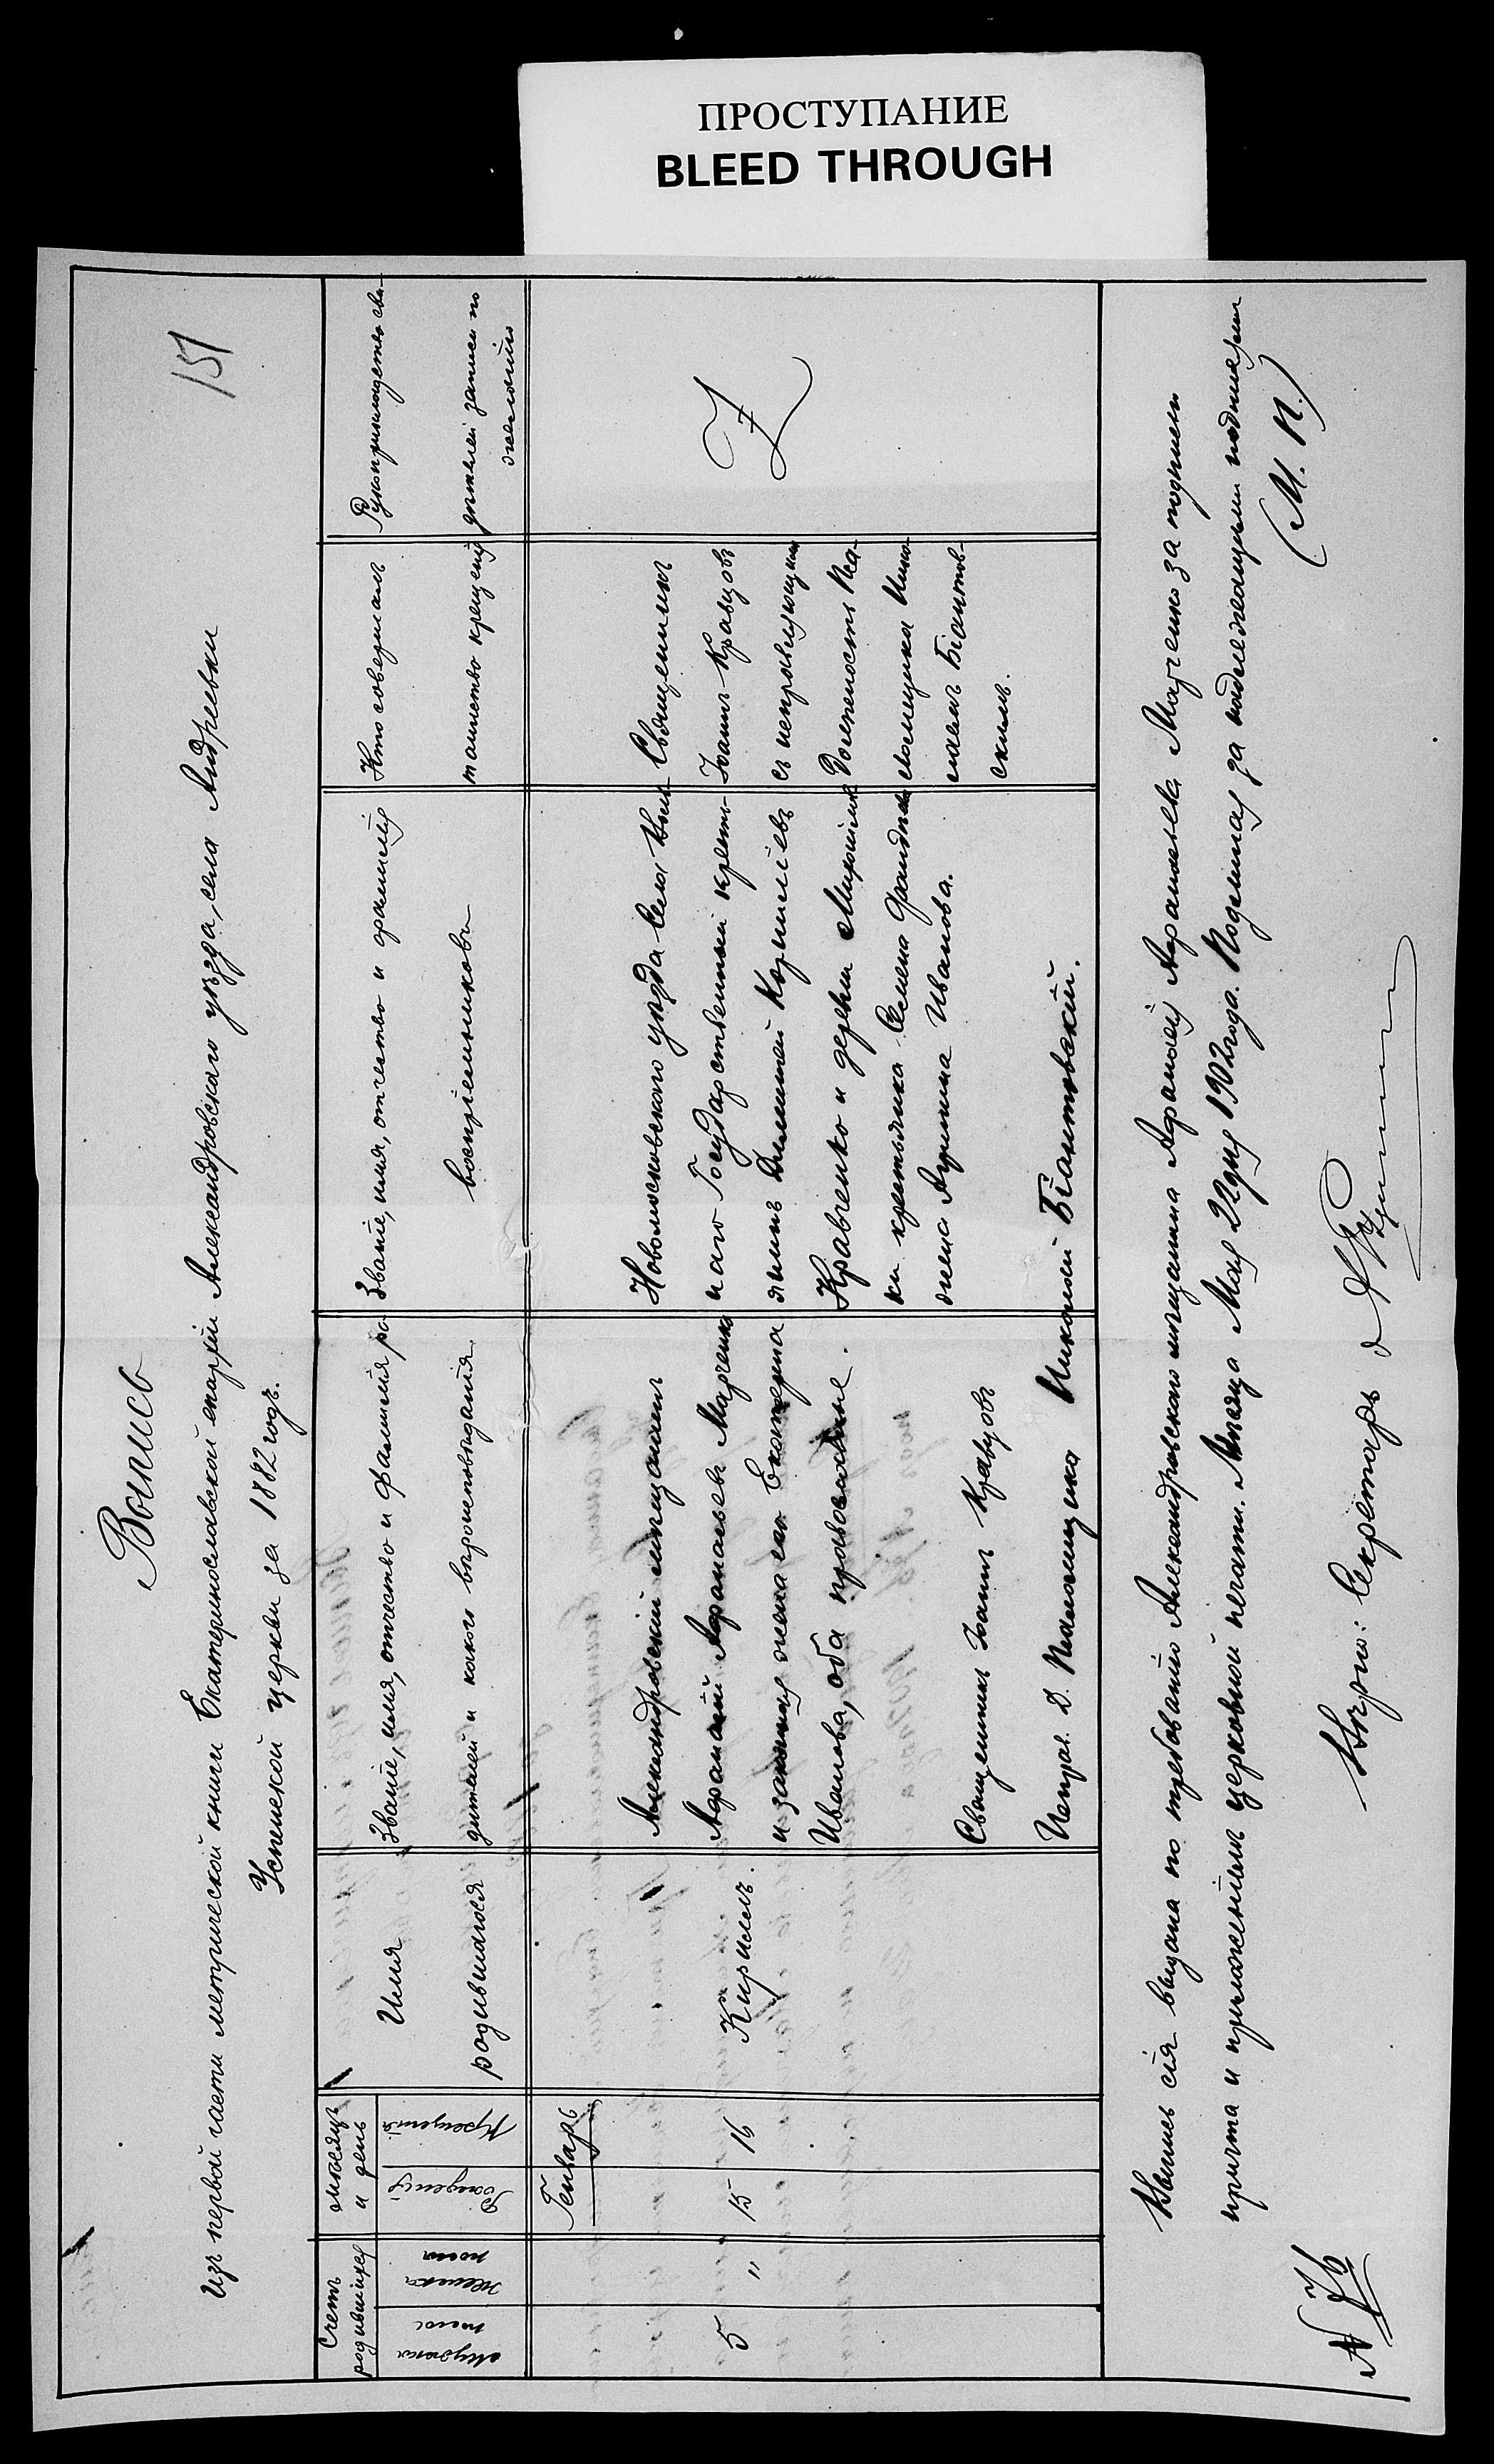 ПРОСТУПАНИЕ
BLEED THROUGH
151
Выпись
Изъ первой части метрической книги Екатеринославской епархіи Александровскаго уѣзда, села Андреевки
Успенской церкви за 1882 годъ.
Счетъ
родившихся
мужска
пола
женска
пола
Мѣсяцъ
и день
Рожденія
Крещенія
Имя
родившагося
Званіе, имя, отчество и фамилія ро-
дителей и какого вѣроисповѣданія
Званіе, имя, отчество и фамилія
воспріемниковъ
Кто совершалъ
таинство крещенія
Рукоприкладство сви-
дѣтелей записи по
желанію
Генварь
5
"
15
16
Кириллъ.
Александровскій мѣщанинъ
Афанасій Афанасьевъ Марченко
и законная жена его Екатерина
Иванова, оба православные.
Новомосковскаго уѣзда села
наго Государственный кресть-
янинъ Дмитрій Корниліевъ
Кравченко и деревни
ки крестьянка Семена
жена Иванова.
Священникъ
Іоаннъ Кравцовъ
съ исправляющимъ
Должность Пса-
ломщика Нико-
лаемъ Біантов-
скимъ.
Священникъ Іоаннъ Кравцовъ
Исправ. д. Псаломщика Николай Біантовскій.
Выпись сія выдана по требованію Александровскаго мѣщанина Афанасія Афанасьева Марченко за подписью
причта и приложеніемъ церковной печати. Мѣсяца Мая 22 дня 1902 года. Подлинная за надлежащимъ подписомъ
(М. П.)
Вѣрно: Секретарь
№ 76